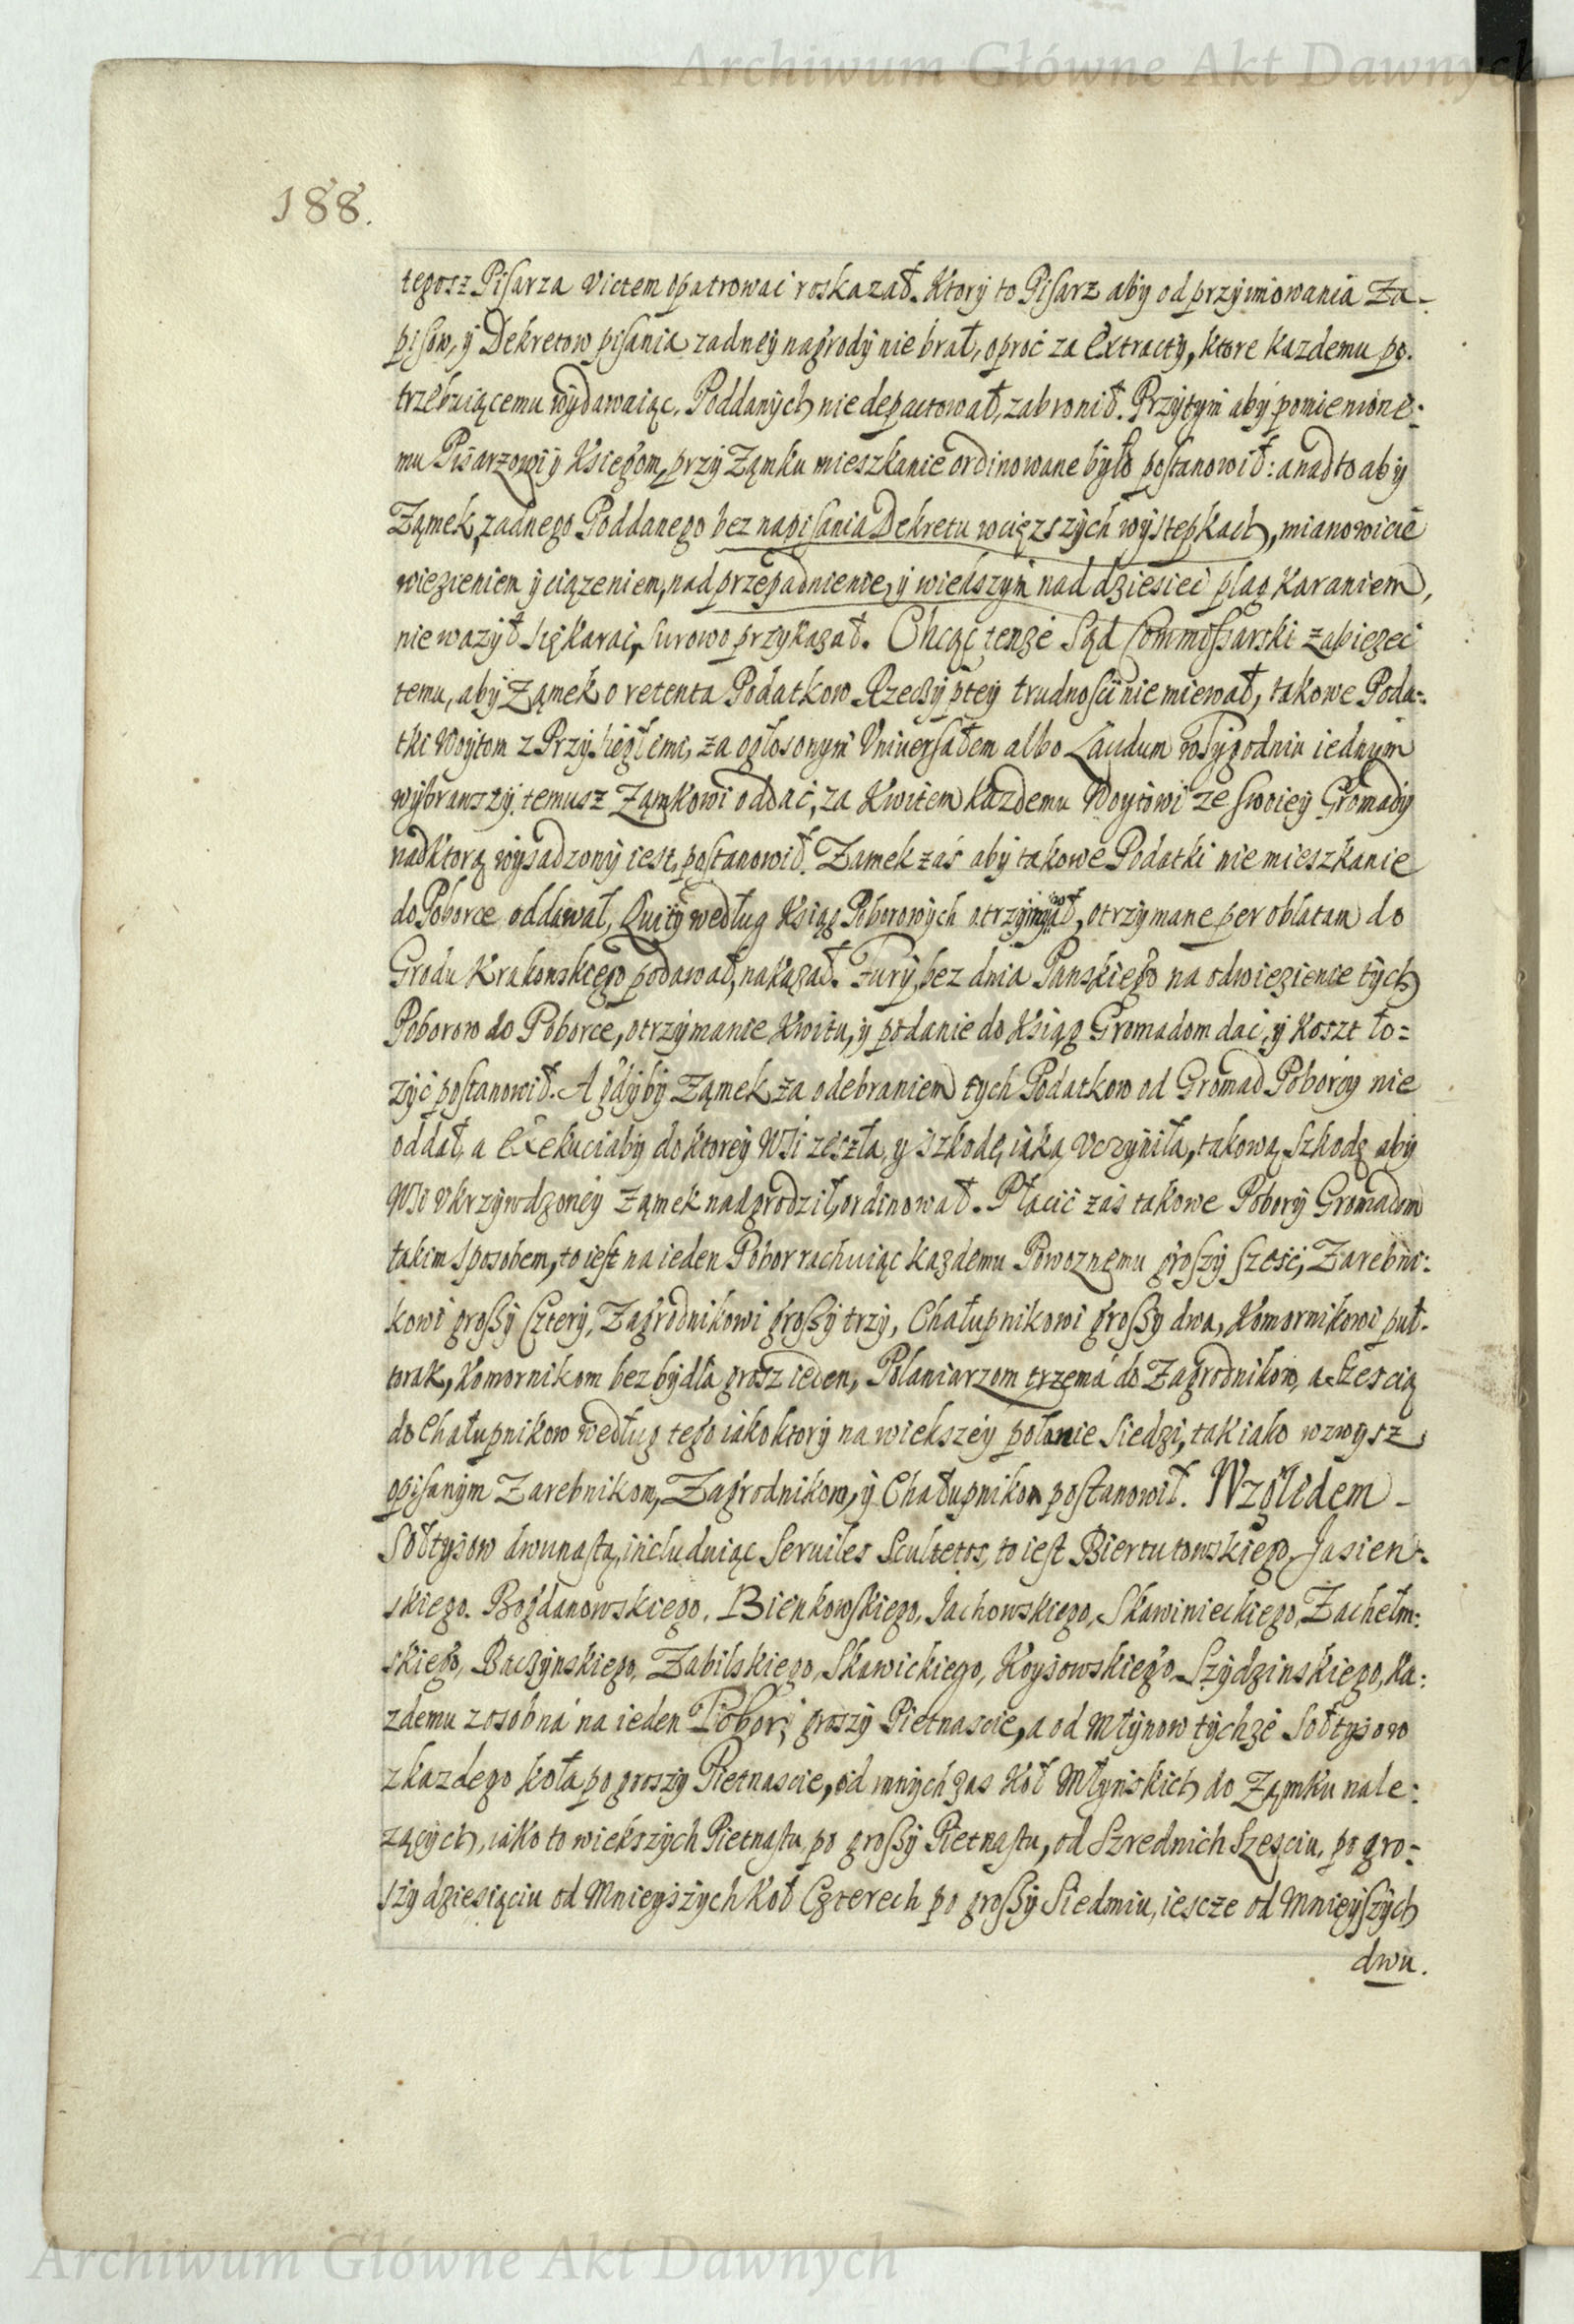 Archiwum Główne Akt Dawnych
188.
tegosz Pisarza victem opatrować roskazał. Ktory to Pisarz aby od przyimowania Za-
pisow, y Dekretow pisania zadney nagrody nie brał, oproć za Extracty, ktore kazdemu po.
trzebuiącemu wydawaiąc, Poddanych nie depactował, zabronił. Przytym aby pomienione:
mu Pisarzowi y Ksiegom, przy Ząmku mieszkanie ordinowane było postanowił: a nad to aby
Ząmek, zadnego Poddanego bez napisania Dekretu w cięzszych występkach, mianowicie
wiezieniem y ciązeniem, nad przepadnienie, y wiekszym nad dziesieć plag karaniem,
nie wazył się karać, surowo przykazał. Chcąc tenze Sąd Commissarski zabiezeć
temu, aby Ząmek o retenta Podatkow Rzeczy ptey trudności nie miewał, takowe Poda:
tki Woytom z Przysiegłemi, za ogłosonym Vniuersałem albo Laudum w Tygodniu iednym
wybranszy, temusz Ząmkowi oddać, za Kwitem kazdemu Woytowi ze swoiey Gromady
nad ktorą wysadzony iest, postanowił. Zamek zaś aby takowe Podatki nie mieszkanie
do Poborce oddawał, Quity według Ksiąg Poborowych otrzymał, otrzymane per oblatam do
Grodu Krakowskiego podawał, nakazał. Fury, bez dnia Panskiego na odwiezienie tych
Poborow do Poborce, otrzymanie Kwitu, y podanie do Ksiąg Gromadom dać, y koszt ło=
zyć postanowił. A gdyby Ząmek za odebraniem tych Podatkow od Gromad Poborcy nie
oddał, a Exekucia by do ktorey Wsi zeszła, y szkodę iaką vczyniła, takową szkodę aby
Wsi vkrzywdzoney Ząmek nadgrodził, ordinował. Płacić zaś takowe Pobory Gromadom
takim sposobem, to iest na ieden Pobor rachuiąc kazdemu Powoznemu groszy sześć, Zarebni:
kowi groszy cztery, Zagrodnikowi groszy trzy, Chałupnikowi groszy dwa, Komornikowi puł-
torak, Komornikom bez bydła grosz ieden, Polaniarzom trzema do Zagrodnikow, a sześcią
do Chałupnikow według tego iako ktory na wiekszey polanie siedzi, tak iako wzwysz
opisanym Zarebnikom, Zagrodnikom, y Chałupnikom postanowił. Względem -
Sołtysow dwunastą, includuiąc Seruiles Scultetos, to iest Biertutowskiego, Jasien:
skiego. Bogdanowskiego, Bienkowskiego, Jachowskiego, Skawinieckiego, Zachełm:
skiego, Baczynskiego, Zabilskiego, Skawickiego, Koysowskiego, Szydzinskiego, ka:
zdemu z osobná na ieden Pobor, groszy Pietnascie, a od Młynow tychze Sołtysow
z kazdego koła po groszy Pietnascie, od innych zas Koł Młynskich do Ząmku nale:
zących, iako to wiekszych Pietnastu, po groszy Pietnastu, od Szrednich Szesciu, po gro=
szy dziesiąciu od Mnieyszych Koł Czterech po groszy Siedmiu, iescze od Mnieyszych
dwu.
Archiwum Główne Akt Dawnych